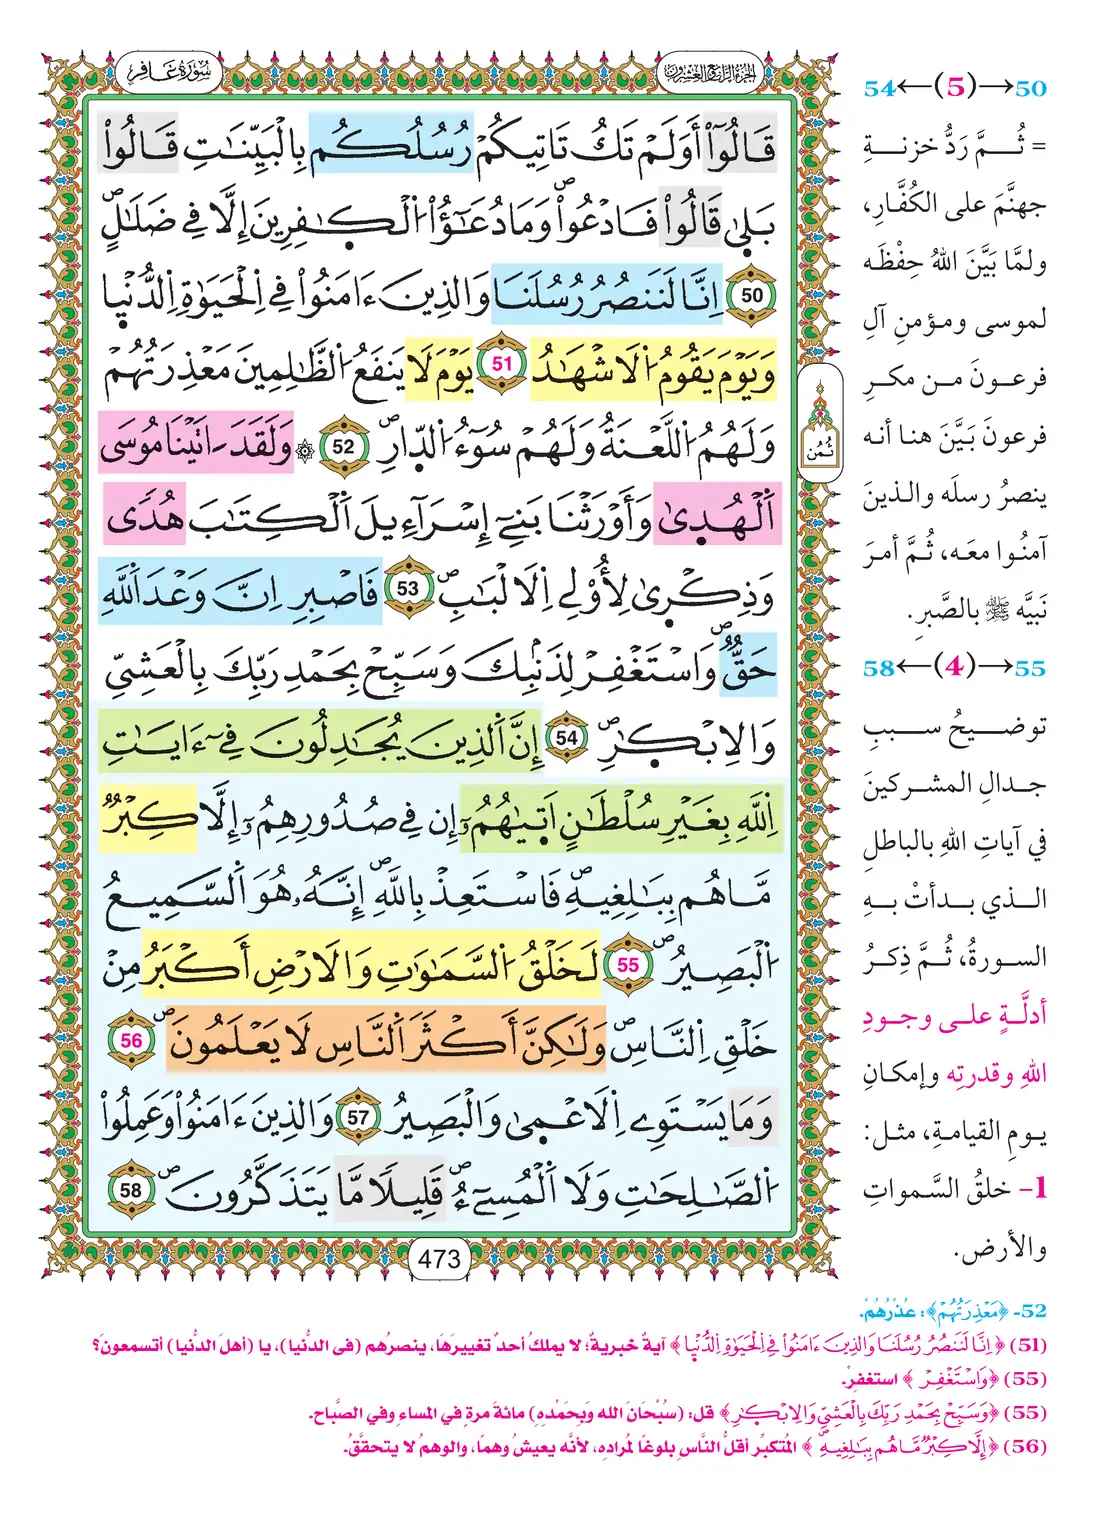 سُورَةُ غَافِرٍ
الجُزءُ الرَّابِعُ وَالعِشْرُونَ
قَالُوٓاْ أَوَلَمْ تَكُ تَاتِيكُمْ رُسُلُكُم بِالْبَيِّنَٰتِ قَالُواْ
بَلٰىۖ قَالُواْ فَادْعُواْۖ وَمَا دُعَٰٓؤُاْ اُ۬لْكٰ۪فِرِينَ إِلَّا فِے ضَلَٰلٍۖ
50 اِنَّا لَنَنصُرُ رُسُلَنَا وَالذِينَ ءَامَنُواْ فِے اِ۬لْحَيَوٰةِ اِ۬لدُّنْي۪ا
وَيَوْمَ يَقُومُ اُ۬لَاشْهَٰدُ 51 يَوْمَ لَا يَنفَعُ اُ۬لظَّٰلِمِينَ مَعْذِرَتُهُمْ
وَلَهُمُ اُ۬للَّعْنَةُ وَلَهُمْ سُوٓءُ اُ۬لدّ۪ارِۖ 52 ۞ وَلَقَدَ اٰتَيْنَا مُوسَى
اَ۬لْهُد۪ىٰ وَأَوْرَثْنَا بَنِےٓ إِسْرَآءِيلَ اَ۬لْكِتَٰبَ هُدًى
وَذِكْر۪ىٰ لِأُوْلِے اِ۬لَالْبَٰبِۖ 53 فَاصْبِرِ اِنَّ وَعْدَ اَ۬للَّهِ
حَقّٞۖ وَاسْتَغْفِرْ لِذَنۢبِكَ وَسَبِّحْ بِحَمْدِ رَبِّكَ بِالْعَشِيِّ
وَالِابْكٰ۪رِۖ 54 إِنَّ اَ۬لذِينَ يُجَٰدِلُونَ فِےٓ ءَايَٰتِ
اِ۬للَّهِ بِغَيْرِ سُلْطَٰنٍ اَت۪يٰهُمُۥٓ إِن فِے صُدُورِهِمُۥٓ إِلَّا كِبْرٞ
مَّا هُم بِبَٰلِغِيهِۖ فَاسْتَعِذْ بِاللَّهِۖ إِنَّهُۥ هُوَ اَ۬لسَّمِيعُ
اُ۬لْبَصِيرُۖ 55 لَخَلْقُ اُ۬لسَّمَٰوَٰتِ وَالَارْضِ أَكْبَرُ مِنْ
خَلْقِ اِ۬لنَّاسِۖ وَلَٰكِنَّ أَكْثَرَ اَ۬لنَّاسِ لَا يَعْلَمُونَۖ 56
وَمَا يَسْتَوِے اِ۬لَاعْم۪ىٰ وَالْبَصِيرُ 57 وَالذِينَ ءَامَنُواْ وَعَمِلُواْ
اُ۬لصَّٰلِحَٰتِ وَلَا اَ۬لْمُسِےٓءُۖ قَلِيلًا مَّا يَتَذَكَّرُونَۖ 58
ثُمُن
473
54←(5)→50
= ثُمَّ رَدُّ خزنةِ
جهنَّمَ على الكُفَّارِ،
ولمَّا بَيَّنَ اللهُ حِفْظَه
لموسى ومؤمنِ آلِ
فرعونَ من مكرِ
فرعونَ بَيَّنَ هنا أنه
ينصرُ رسلَه والذينَ
آمنُوا معَه، ثُمَّ أمرَ
نَبيَّه ﷺ بالصَّبرِ.
58←(4)→55
توضيحُ سببِ
جدالِ المشركينَ
في آياتِ اللهِ بالباطلِ
الذي بدأتْ بهِ
السورةُ، ثُمَّ ذِكرُ
أدلَّةٍ على وجودِ
اللهِ وقدرتِه وإمكانِ
يومِ القيامةِ، مثل:
1- خلقُ السَّمواتِ
والأرضِ.
52- ﴿مَعْذِرَتُهُمْ﴾: عُذْرُهُمْ.
(51) ﴿اِنَّا لَنَنصُرُ رُسُلَنَا وَالذِينَ ءَامَنُواْ فِے اِ۬لْحَيَوٰةِ اِ۬لدُّنْي۪ا﴾ آيةٌ خبريةٌ؛ لا يملكُ أحدٌ تغييرَهَا، ينصرُهم (في الدنيا)، يا (أهلَ الدُّنيا) أتسمعونَ؟
(55) ﴿وَاسْتَغْفِرْ﴾ استغفِرْ.
(55) ﴿وَسَبِّحْ بِحَمْدِ رَبِّكَ بِالْعَشِيِّ وَالِابْكٰ۪رِ﴾ قل: (سُبْحَانَ الله وَبِحَمْدِهِ) مائةَ مرةٍ في المساءِ وفي الصَّباحِ.
(56) ﴿إِلَّا كِبْرٞ مَّا هُم بِبَٰلِغِيهِۖ﴾ المتكبِّر أقلُّ النَّاسِ بلوغًا لمرادِهِ، لأنَّه يعيشُ وهمًا، والوهمُ لا يتحقَّقُ.